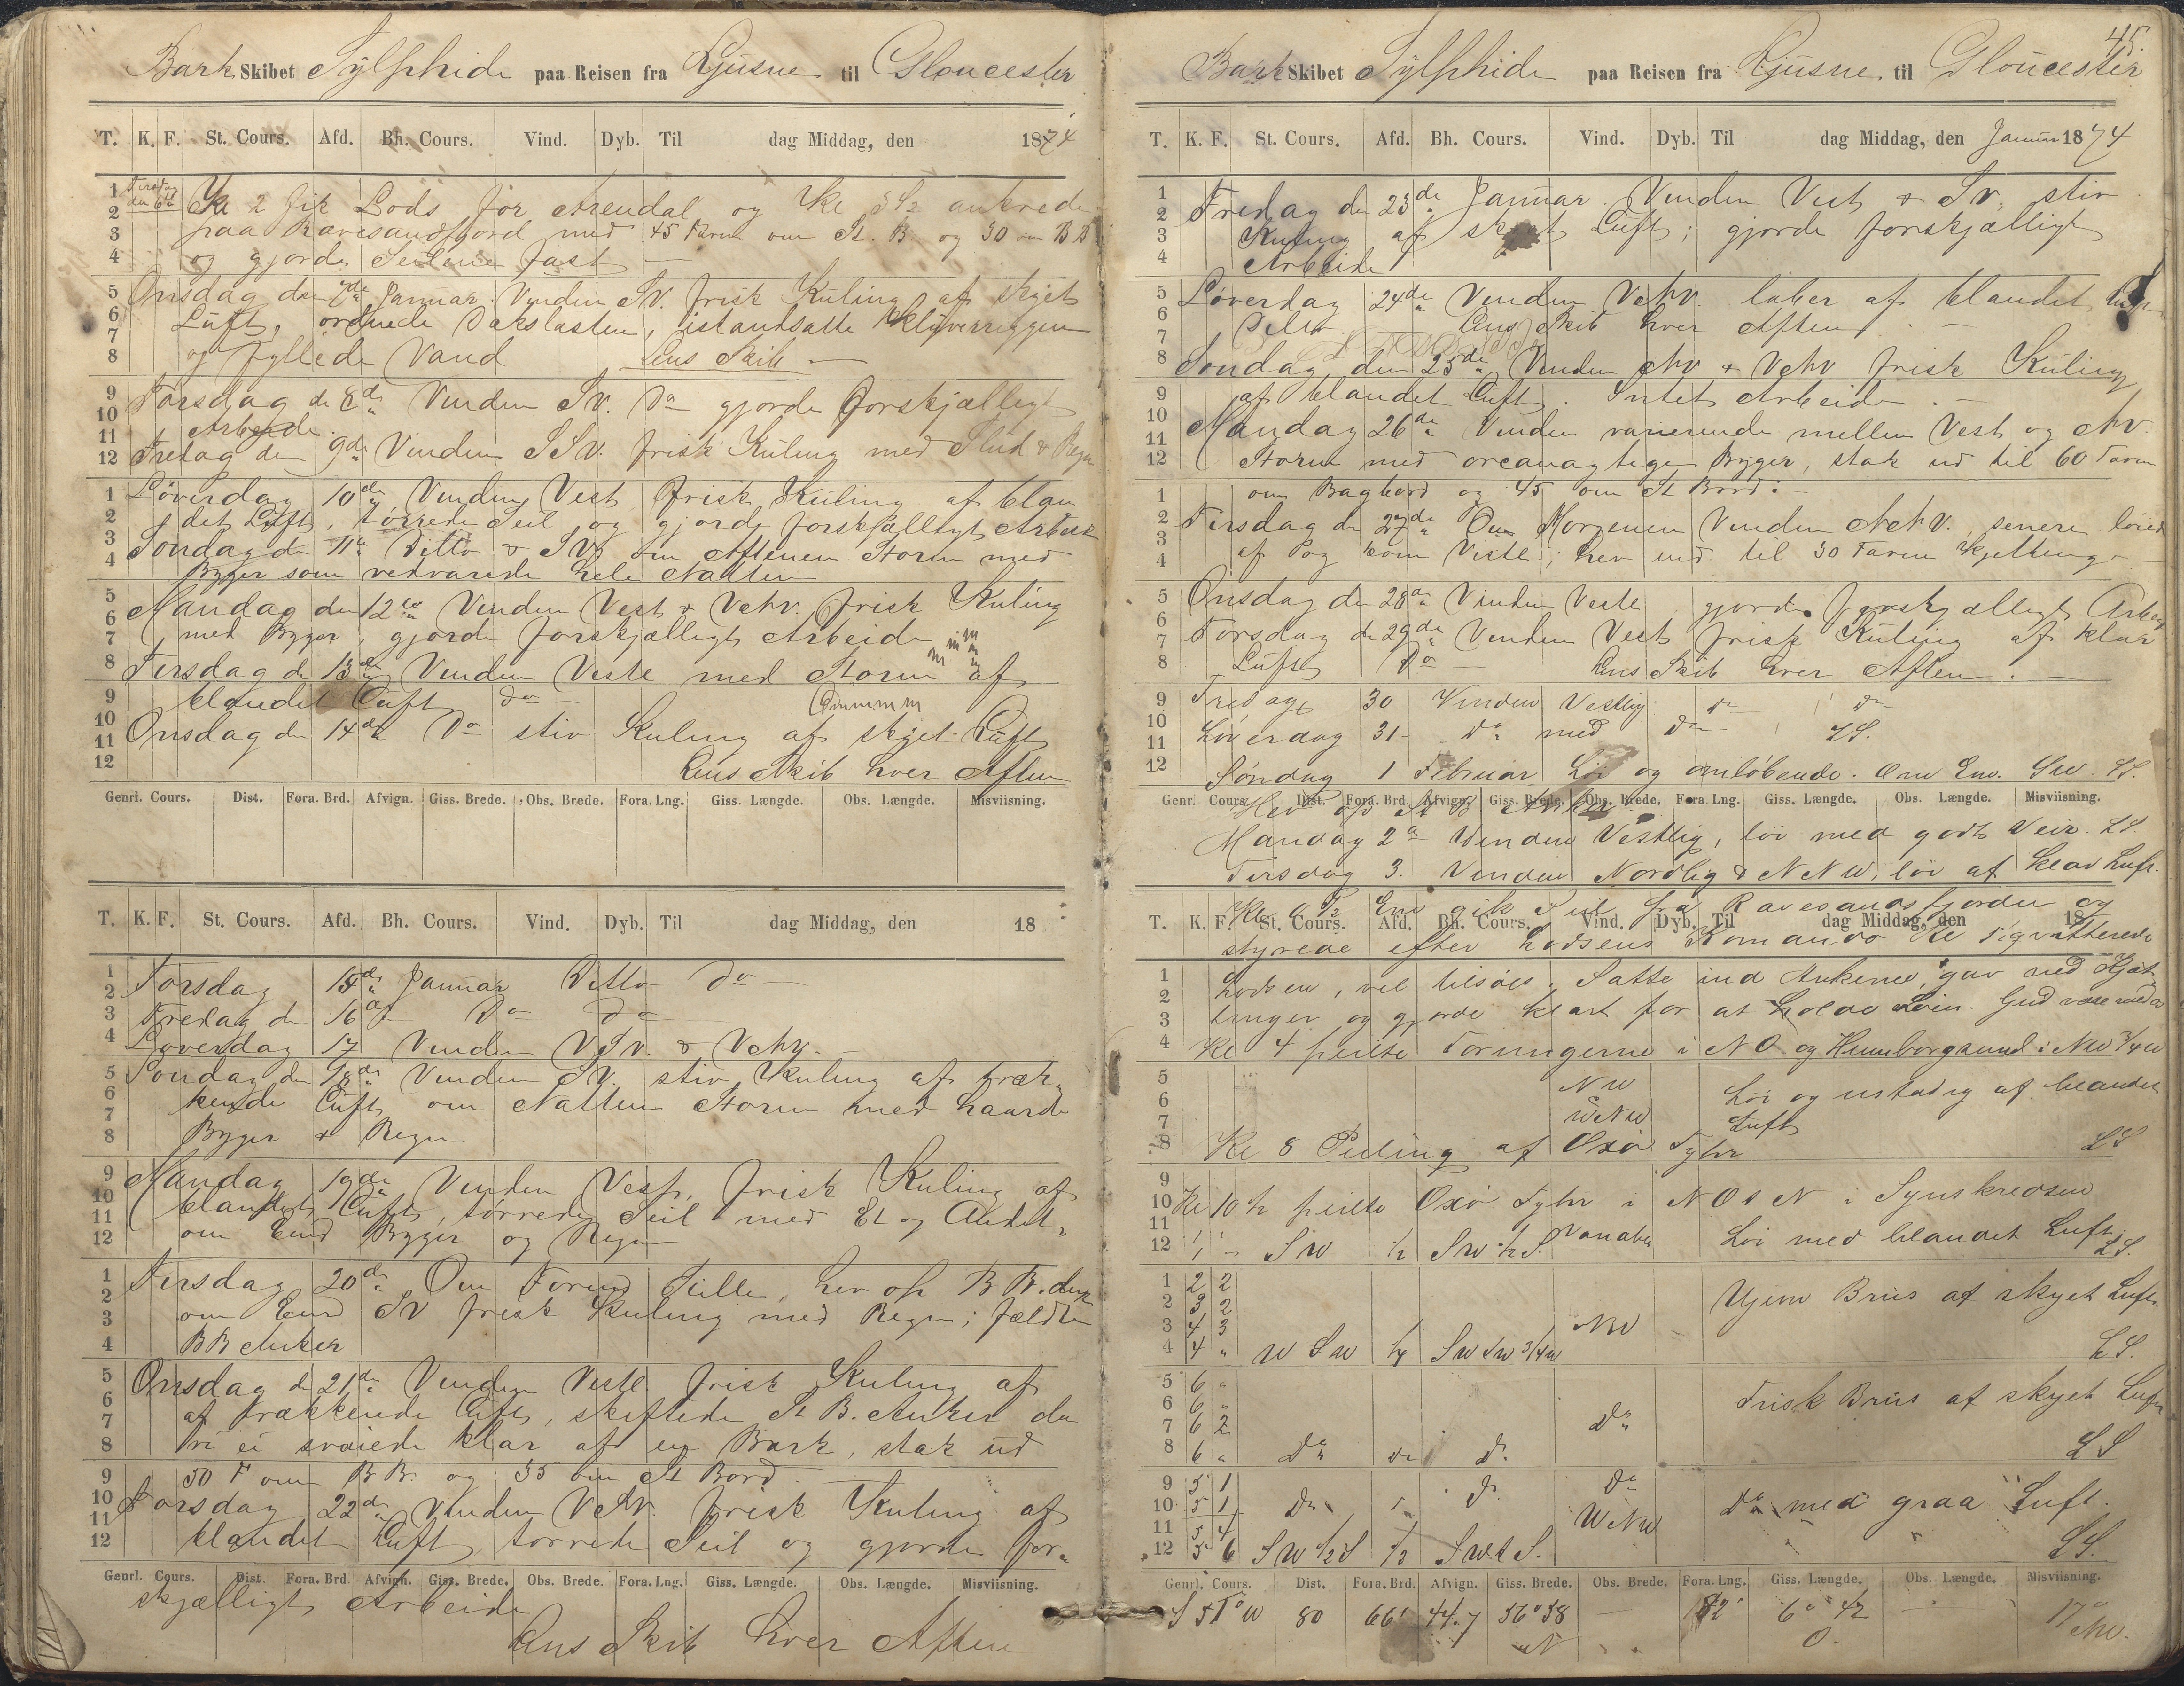 Bark Skibet Sylphide paa Reisen fra Ljusne til Gloucester
T. K. F. St. Cours. Afd. Bh. Cours. Vind. Dyb. Til dag Middag, den 1874
Tirsdag den 6te Kl 2 fik Lods for Arendal og Kl 3 1/2 ankrede
paa Ravesandfjord med 45 Favne om St. B. og 30 om BB
og gjorde Seilene fast
Onsdag den 7de Januar. Vinden SV. frisk Kuling af skyet
Luft, ordnede Dækslasten, istandsatte Klyverriggen
og fyllede Vand Lens Skib
Torsdag d 8de Vinden SV. Do gjorde forskjælligt
Arbeide
Fredag den 9de Vinden SSV. frisk Kuling med Slud & Regn
Løverdag 10de Vinden Vest frisk Kuling af blan
det Luft, tørrede Seil og gjorde forskjælligt Arbeide
Søndag d 11te Ditto & SV om Aftenen Storm med
Byger som vedvarede hele Natten
Mandag den 12te Vinden Vest & VNV. frisk Kuling
med Byger, gjorde forskjælligt Arbeide
Tirsdag d 13de Vinden Vestl med Storm af
blandet Luft do
Onsdag d 14de Do stiv Kuling af skyet Luft
Lens Skib hver Aften
Genrl. Cours. Dist. Fora. Brd. Afvign. Giss. Brede. Obs. Brede. Fora. Lng. Giss. Længde. Obs. Længde. Misviisning.
T. K. F. St. Cours. Afd. Bh. Cours. Vind. Dyb. Til dag Middag, den 18
Torsdag 15de Januar Ditto do
Fredag d 16de Do do
Løverdag 17 Vinden VSV. & VNV.
Søndag den 18de Vinden SV. stiv Kuling af træk=
kende Luft om Natten Storm med haarde
Byger & Regn
Mandag 19de Vinden Vest, frisk Kuling af
blandet Luft, tørrede Seil med Et og Andet,
om Emd Byger og Regn
Tirsdag 20de Om Formd Stille, hev op BB. dræg
om Emd SV frisk Kuling med Regn; fældte
BB Anker
Onsdag d 21de Vinden Vestl frisk Kuling af
af trækkende Luft, skiftede St B. Anker da
vi ei svaiede klar af en Bark, stak ud
50 F om BB. og 35 om St Bord
Torsdag 22de Vinden VNV. frisk Kuling af
blandet Luft, tørrede Seil og gjorde for=
Genrl. Cours. Dist. Fora. Brd. Afvign. Giss. Brede. Obs. Brede. Fora. Lng. Giss. Længde. Obs. Længde. Misviisning.
skjælligt Arbeide
Lens Skib hver Aften
45.
Bark Skibet Sylphide paa Reisen fra Ljusne til Gloucester
T. K. F. St. Cours. Afd. Bh. Cours. Vind. Dyb. Til dag Middag, den Januar 1874
Fredag den 23de Januar. Vinden Vest & SV. stiv
Kuling af skyet Luft; gjorde forskjælligt
Arbeide
Løverdag 24de Vinden VNV. laber af blandet Luft
Lens Skib hver Aften
Søndag den 25de Vinden NV & VNV frisk Kuling
af blandet Luft. Intet Arbeide
Mandag 26de Vinden varierende mellem Vest og NV.
Storm med orcanagtige Byger, stak ud til 60 Favne
om Bagbord og 45 om St Bord.
Tirsdag d 27de Om Morgenen Vinden NNV. senere løiede
af og kom Vestl; hev ind til 30 Favne Kjetting
Onsdag den 28de Vinden Vestl gjorde forskjælligt Arbeid
Torsdag d 29de Vinden Vest frisk Kuling af klar
Luft do Lens Skib hver Aften.
Fredag 30 Vinden Vestlig do do
Løverdag 31 do med do LS.
Søndag 1 Februar Løi og omløbende. Om Em. SW. LS.
Genrl. Cours. Dist. Fora. Brd. Afvign. Giss. Brede. Obs. Brede. Fora. Lng. Giss. Længde. Obs. Længde. Misviisning.
Hev op St B Anker
Mandag 2de Vinden Vestlig, løi med godt Veir. LS.
Tirsdag 3. Vinden Nordlig & NNW, løi af klar Luft.
T. K. F. St. Cours. Afd. Bh. Cours. Vind. Dyb. Til dag Middag, den 18
Em gik Seil fra Ravesandsfjorden og
styrede efter Lodsens Komando Kl 1 qvitterede
Lodsen, vel tilsøes. Satte ind Ankerne, gav ned Kjæt
tinger og gjorde klart for at holde Søen. Gud være med os
Kl 4 peilte Torungerne i NO og Homborgsund i NW 3/4 W
NW Løi og ustadig af blandet
WNW Luft
Kl 8 Peiling af Oxø Fyhr LS
Kl 10 1/2 peilte Oxø Fyhr i NOtN i Synskredsen
SW 1/2 SW 1/2 S. Variabel Løi med blandet Luft LS.
2 2
3 2 Ujevn Briis af skyet Luft.
4 3 NW
4 " WSW 1/4 SWtW 3/4 W LS.
6 " Frisk Briis af skyet Luft
6 "
6 2 do
6 " do do do LS
5 1 do
5 1 do do do med graa Luft.
5 4 WNW
5 6 SW 1/2 S 1/2 SWtS. LS.
Genrl. Cours. Dist. Fora. Brd. Afvign. Giss. Brede. Obs. Brede. Fora. Lng. Giss. Længde. Obs. Længde. Misviisning.
S 51° W 80 66' 44.7 56° 58 N 82' 6° 42 O. 17° NW.